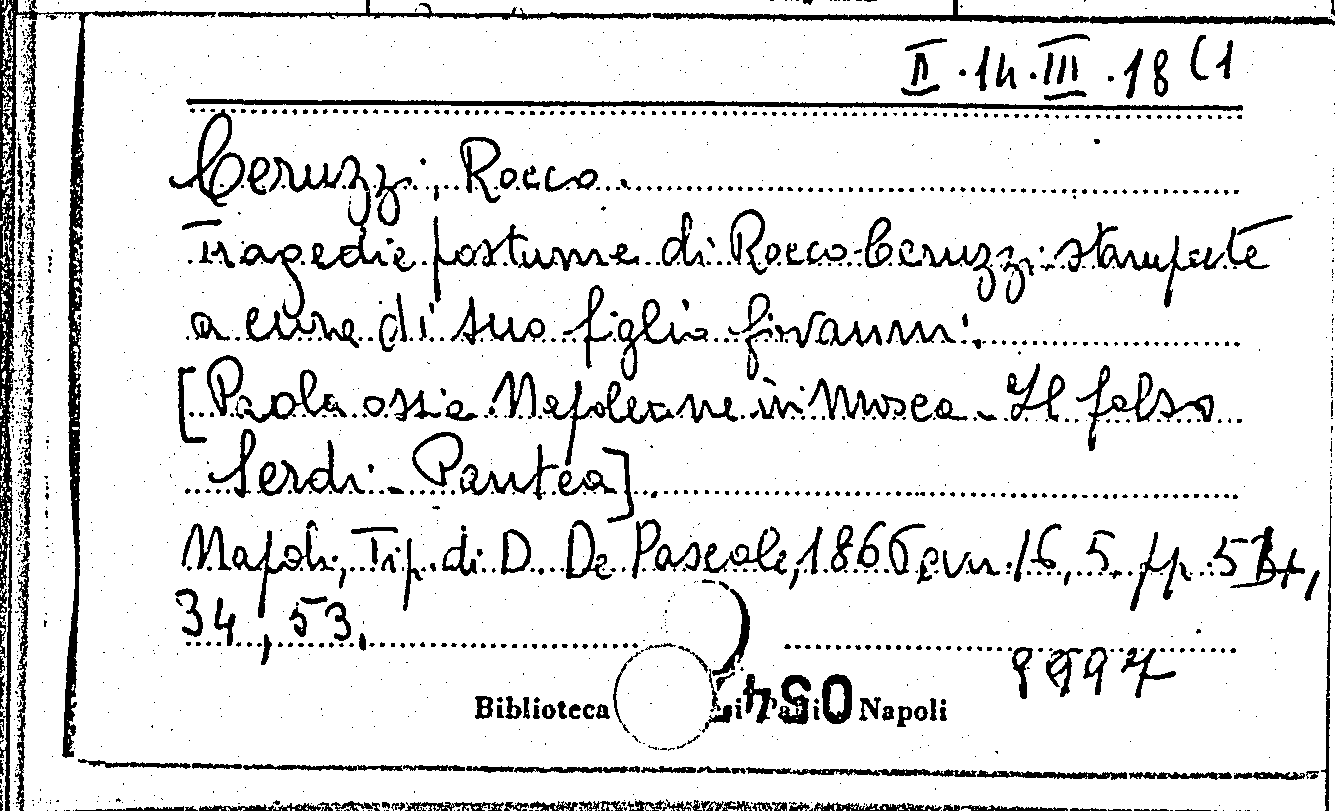 II.14.III.18 (1
Ceruzzi, Rocco.
Tragedie postume di Rocco Ceruzzi stampate
a cura di suo figlio Giovanni.
[Paola ossia Napoleone in Mosca - Il falso
Serdi - Pantea].
Napoli, Tip. di D. De Pascale, 1866 in 16, 5. pp.
34, 53.
9997
Biblioteca Napoli